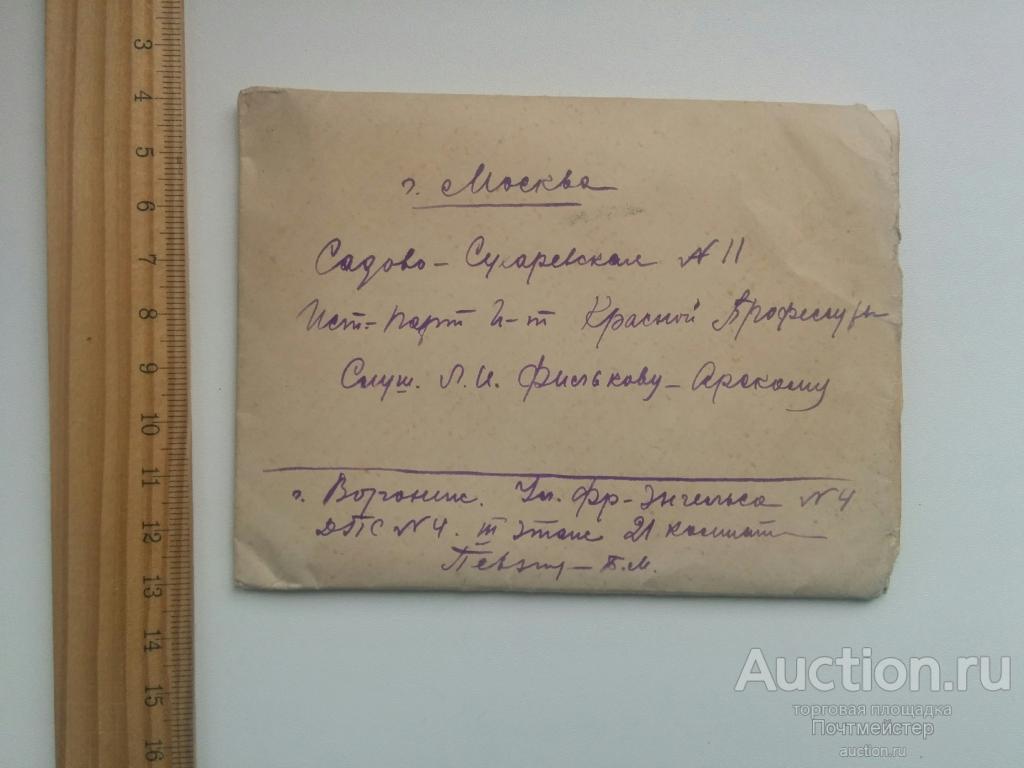 3
4
5
6
7
8
9
10
11
12
13
14
15
16
г. Москва
Садово-Сухаревская № 11
Ист-парт И-т Красной Профессуры
Слуш. Л.И. Филькову-Арскому
г. Воронеж. Ул. Фр-Энгельса № 4
ДПС № 4. III этаж 21 комната
Б.М.
Auction.ru
торговая площадка
Почтмейстер
auction.ru